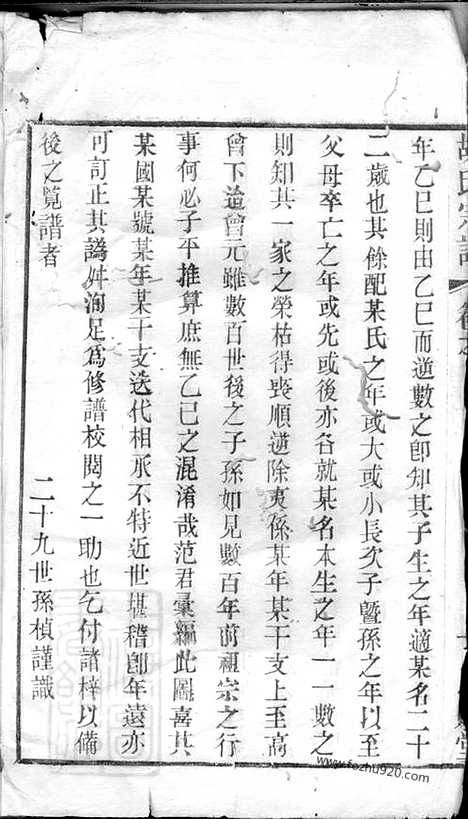 胡氏宗譜
年乙巳則由乙巳而逆數之卽知其子生之年適某名二十
二歲也其餘配某氏之年或大或小長次子曁孫之年以至
父母卒亡之年或先或後亦各就某名本生之年一一數之
則知其一家之榮枯得喪順逆除夷係某年某干支上至高
曾下造曾元雖數百世後之子孫如見數百年前祖宗之行
事何必子平推算庶無乙巳之混淆哉范君彙編此圖喜其
某國某號某年某干支迭代相承不特近世堪稽卽年遠亦
可訂正其譌舛洵足爲修譜校閱之一助也乞付諸梓以備
後之覽譜者
二十九世孫楨謹識
www.fozhu920.com